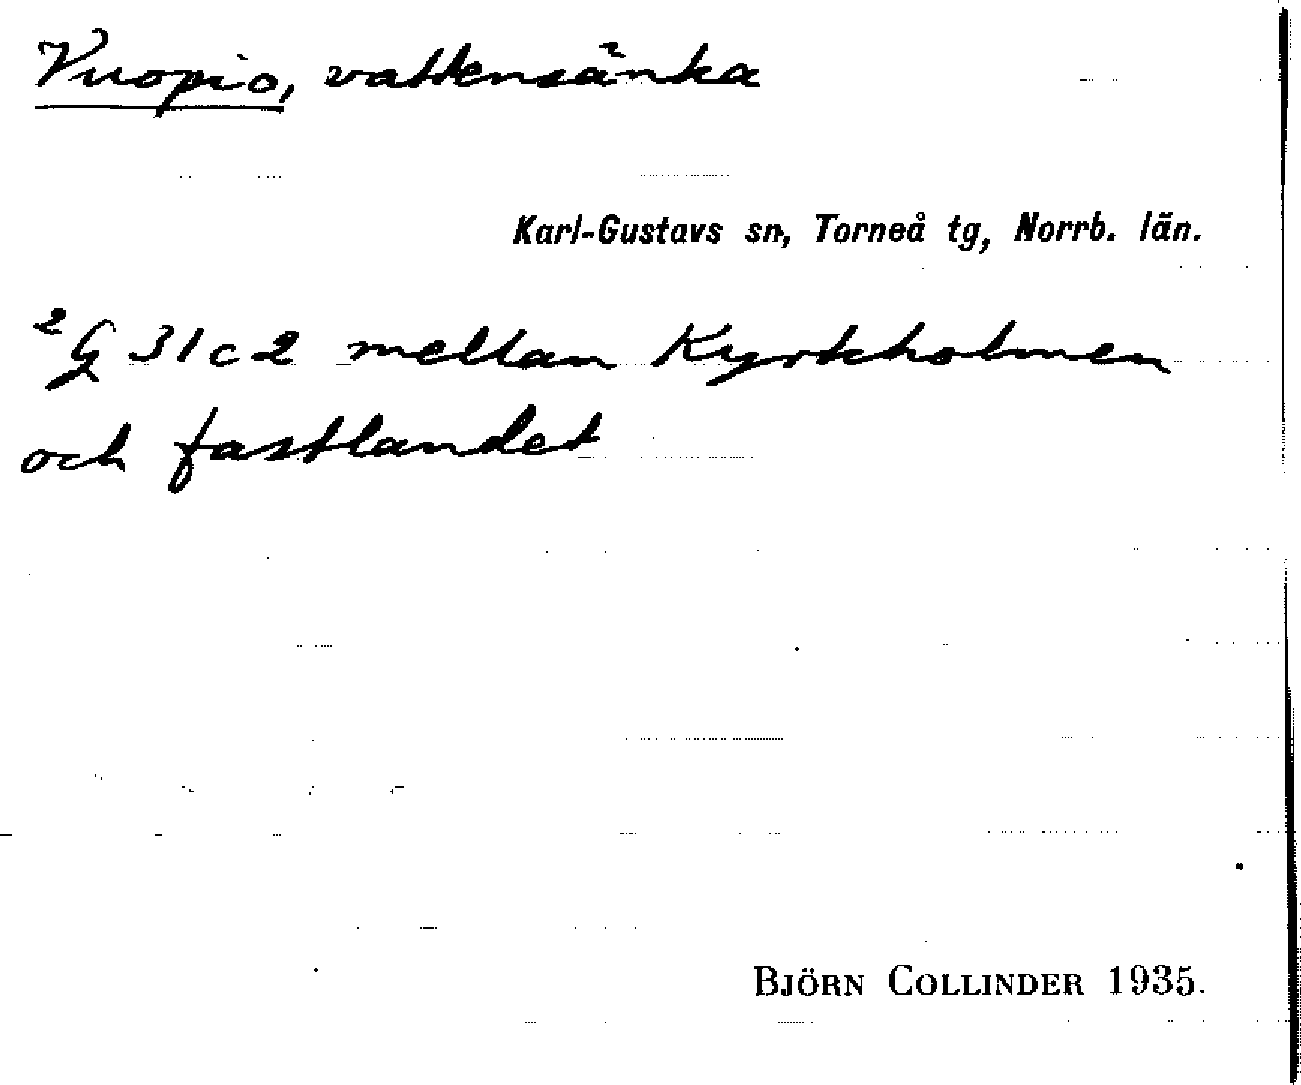 Vuopio, vattensänka
Karl-Gustavs sn, Torneå tg, Norrb. län.
²G 31c2 mellan Kyrkholmen
och fastlandet
BJÖRN COLLINDER 1935.